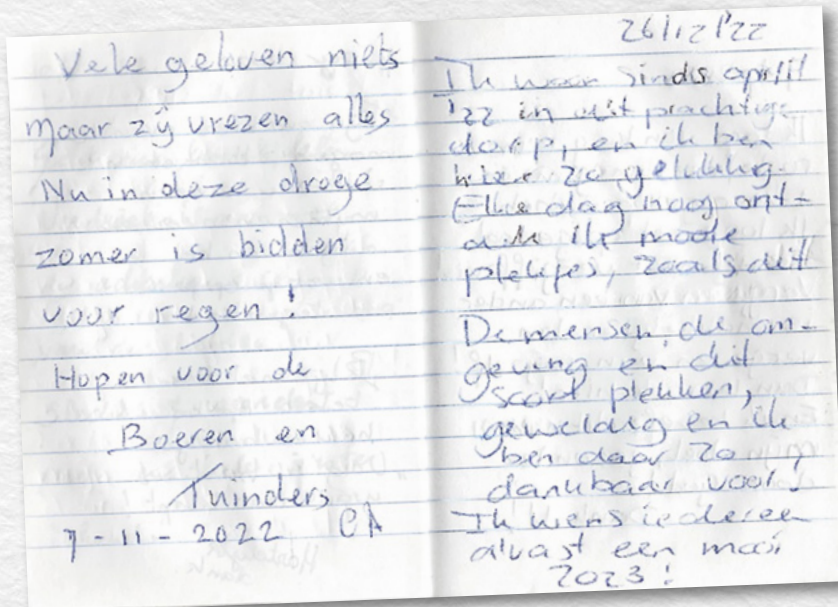 Vele geloven niets
maar zij vrezen alles
Nu in deze droge
zomer is bidden
voor regen !
Hopen voor de
Boeren en
Tuinders
7-11-2022 CA
26/12/'22
Ik woon sinds april
'22 in dit prachtige
dorp, en ik ben
hier zo gelukkig.
Elke dag nog ont-
dek ik mooie
plekjes, zoals dit
De mensen, de om-
geving en dit
soort plekken,
geweldig en ik
ben daar zo
dankbaar voor.
Ik wens iedereen
alvast een mooi
2023 !